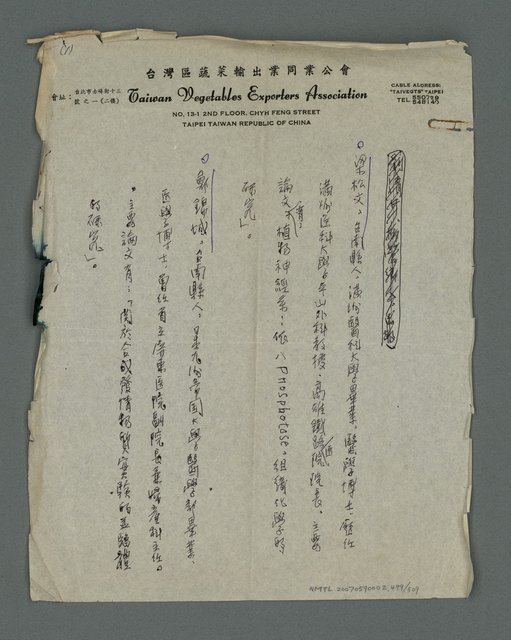 (1)
台灣區蔬菜輸出業同業公會
會址：台北市赤峰街十三號之一(二樓)
Taiwan Vegetables Exporters Association
CABLE ADDRESS:
"TAIVEGTS" TAIPEI
TEL 5507
548147
NO, 13-1 2ND FLOOR. CHYH FENG STREET
TAIPEI TAIWAN REPUBLIC OF CHINA
梁松文，台南縣人，滿洲醫科大學畢業，醫學博士，歷任
滿洲医科大學 外科教授，高雄鐵路医院院長。主要
論文有：植物神經系 依 Phosphotase，組織化學的
研究」。
郭錦城，台南縣人，日本九州帝国大學醫學部畢業，
医學博士，曾任省立屏東医院副院長兼婦産科主任。
主要論文有：「関於合成發情物質實驗的
的研究」。
NMTL 20070590002_499/509